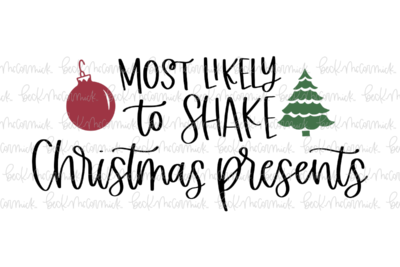 MOST LIKELY
to SHAKE
Christmas presents